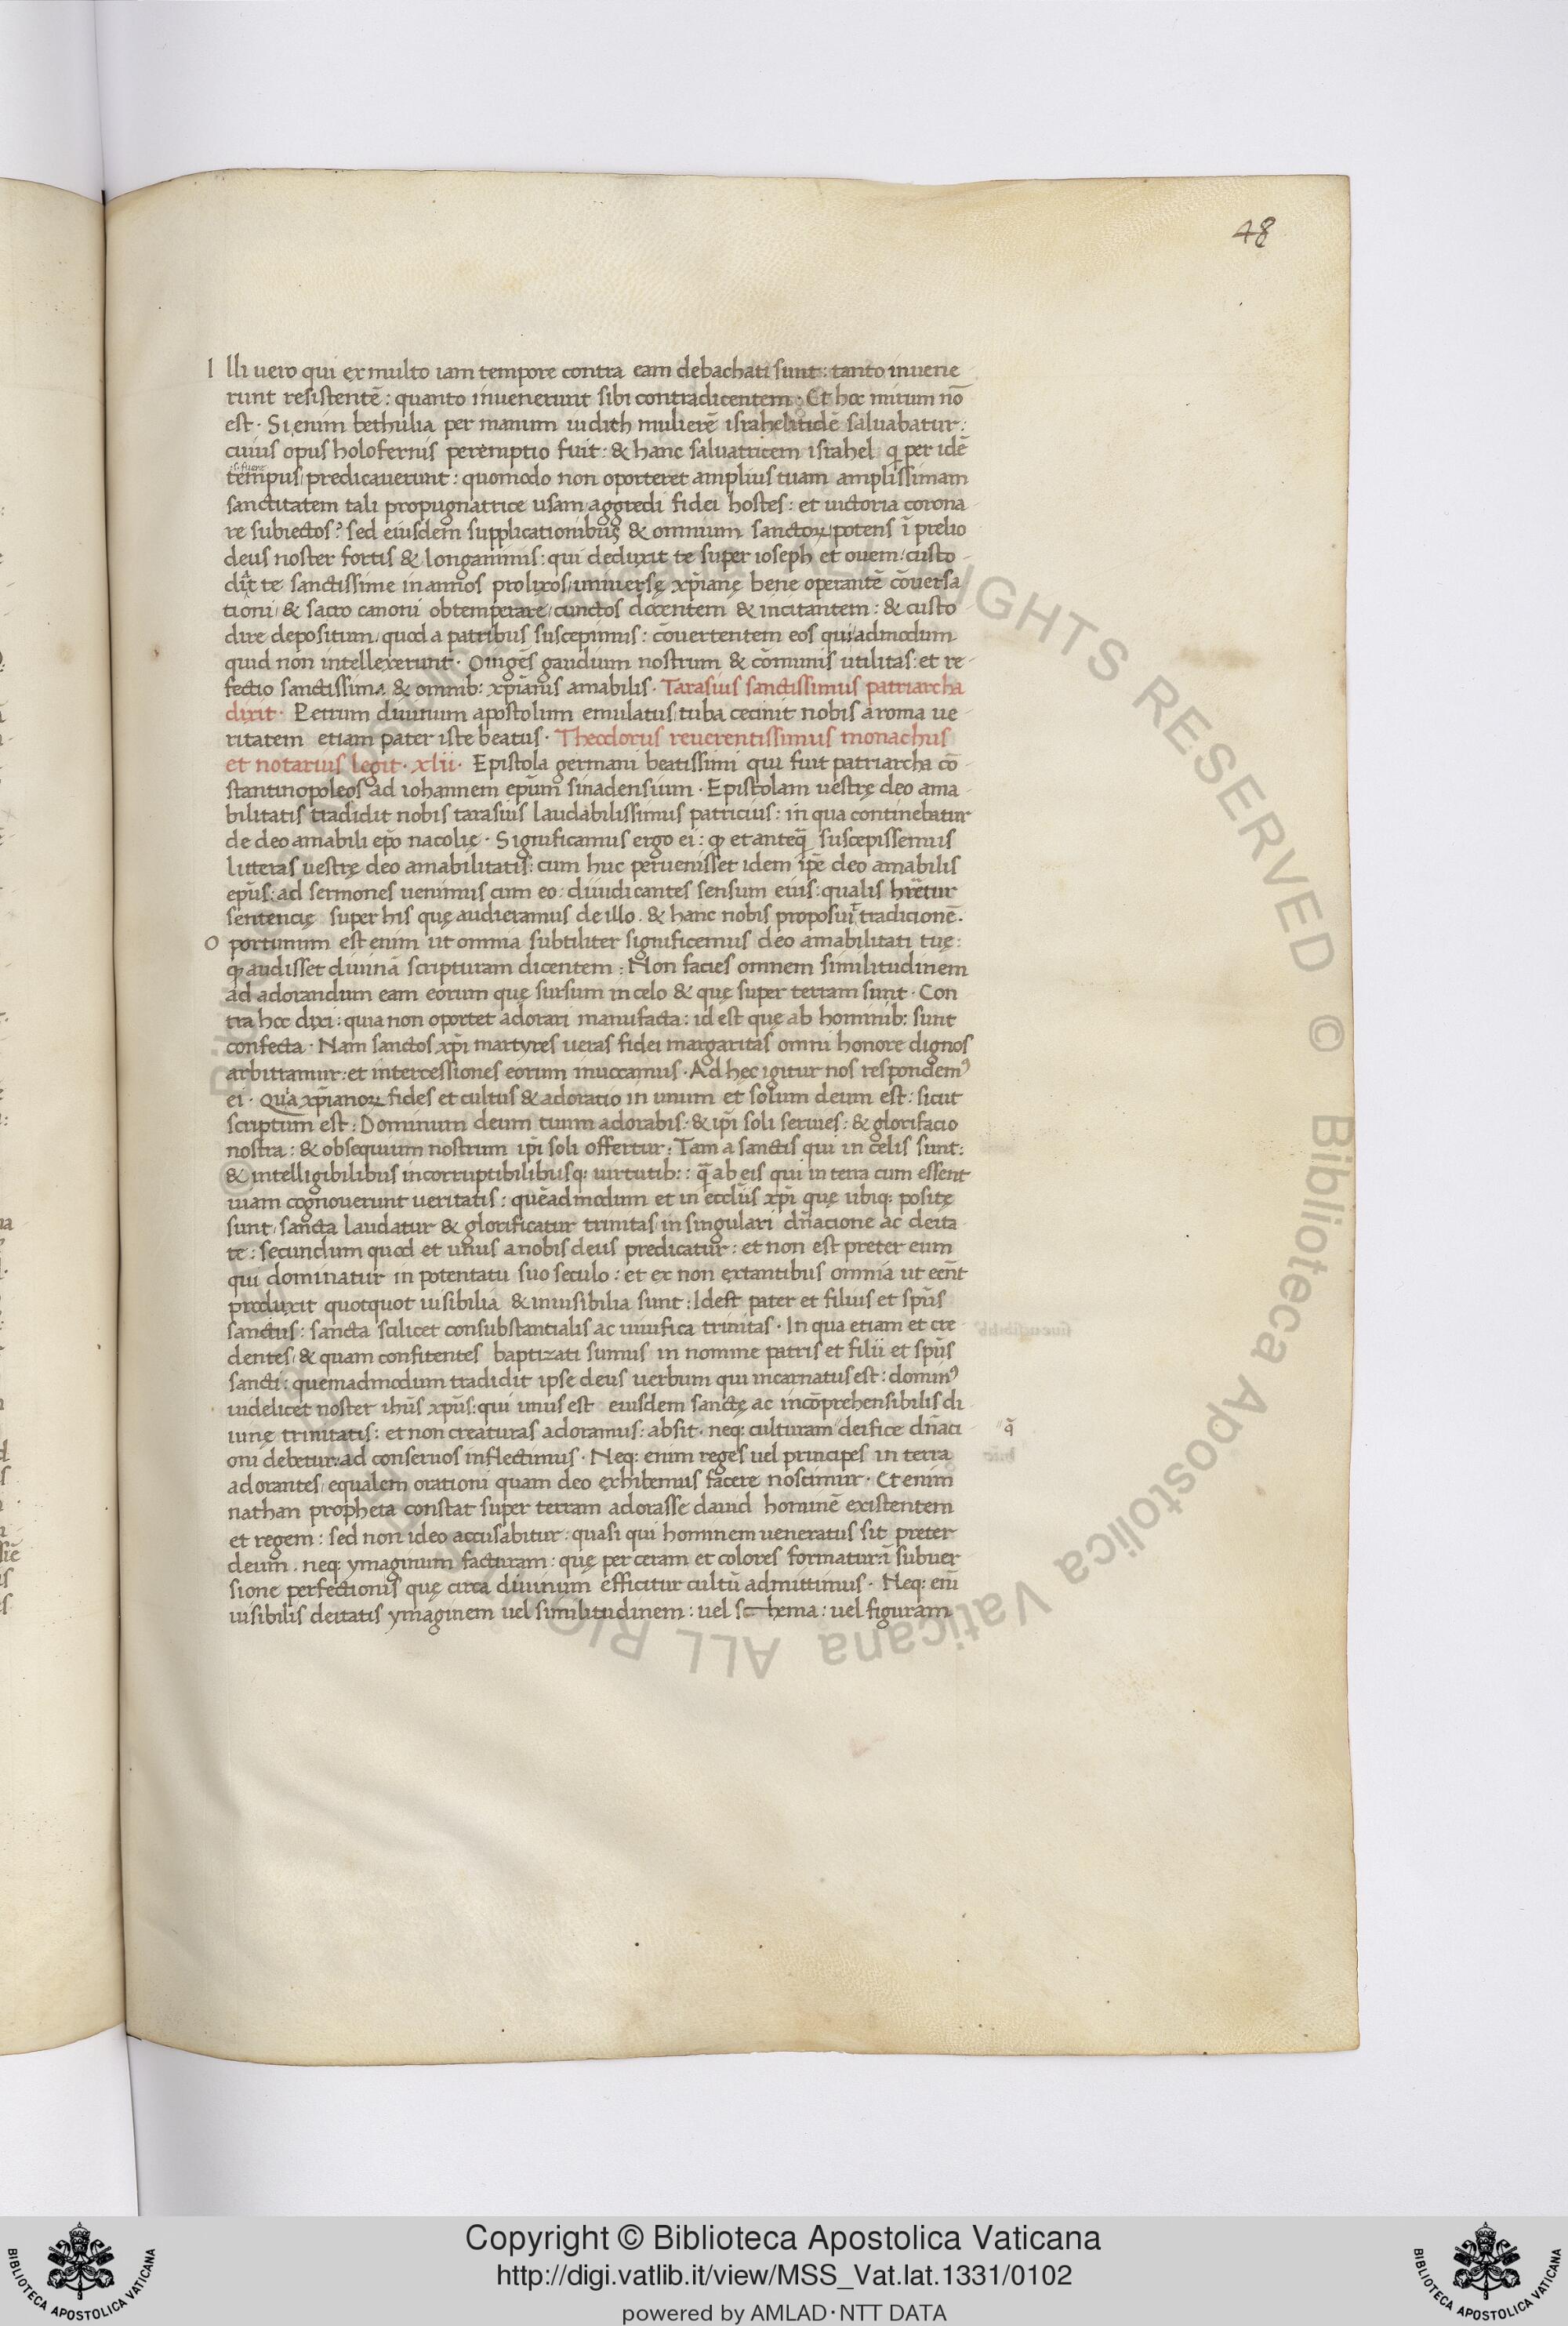 48
Illi uero qui ex multo iam tempore contra eam debachati sunt: tanto inuene
runt resistentē: quanto inuenerunt sibi contradicentem. Et hoc mirum nō
est. Si enim bethulia per manum iudith mulierē israhelitidē saluabatur:
cuius opus holofernis peremptio fuit: & hanc saluatricem israhel q per idē
tempus predicauerunt: quomodo non oporteret amplius tuam amplissimam
sanctitatem tali propugnatrice usam aggredi fidei hostes: et uictoria corona
re subiectos? sed eiusdem supplicationibus & omnium sanctoꝝ potens ī prelio
deus noster fortis & longanimis: qui deduxit te super ioseph et ouem custo
diat te sanctissime in annos prolixos uniuersę xp̄ianę bene operantē cōuersa
tioni & sacro canoni obtemperare cunctos docentem & incitantem: & custo
dire depositum quod a patribus suscepimus: cōuertentem eos qui admodum
quid non intellexerunt. O ingēs gaudium nostrum & cōmunis utilitas: et re
fectio sanctissima & omnib: xp̄ianis amabilis. Tarasius sanctissimus patriarcha
dixit. Petrum diuinum apostolum emulatus tuba cecinit nobis a roma ue
ritatem etiam pater iste beatus. Theodorus reuerentissimus monachus
et notarius legit. xlii. Epistola germani beatissimi qui fuit patriarcha cō
stantinopoleos ad iohannem ep̄um sinadensium. Epistolam uestrę deo ama
bilitatis tradidit nobis tarasius laudabilissimus patricius: in qua continebatur
de deo amabili ep̄o nacolię. Significamus ergo ei: ꝙ et anteq̄ suscepissemus
litteras uestrę deo amabilitatis: cum huc peruenisset idem ip̄e deo amabilis
ep̄us: ad sermones uenimus cum eo: diiudicantes sensum eius: qualis hr̄etur
sentencię super his quę audieramus de illo. & hanc nobis proposuit tradicionē.
Oportunum est enim ut omnia subtiliter significemus deo amabilitati tuę:
ꝙ audisset diuinā scripturam dicentem: Non facies omnem similitudinem
ad adorandum eam eorum quę sursum in celo & quę super terram sunt. Con
tra hoc dixi: quia non oportet adorari manufacta: id est quę ab hominib: sunt
confecta. Nam sanctos xp̄i martyres ueras fidei margaritas omni honore dignos
arbitramur: et intercessiones eorum inuocamus. Ad hęc igitur nos respondemꝰ
ei. Quia xp̄ianoꝝ fides et cultus & adoratio in unum et solum deum est: sicut
scriptum est: Dominum deum tuum adorabis. & ip̄i soli seruies: & glorifacio
nostra: & obsequium nostrum ip̄i soli offertur: Tam a sanctis qui in celis sunt:
& intelligibilibus incorruptibilibusq: uirtutib: : q̄ ab eis qui in terra cum essent
uiam cognouerunt ueritatis: quēadmodum et in eccl̄iis xp̄i quę ubiq: positę
sunt sancta laudatur & glorificatur trinitas in singulari dn̄acione ac deita
te: secundum quod et unus a nobis deus predicatur: et non est preter eum
qui dominatur in potentatu suo seculo: et ex non extantibus omnia ut eēnt
produxit quotquot uisibilia & inuisibilia sunt: Idest pater et filius et sp̄us
sanctus: sancta scilicet consubstantialis ac uiuifica trinitas. In qua etiam et cre
dentes & quam confitentes baptizati sumus in nomine patris et filii et sp̄us
sancti: quemadmodum tradidit ipse deus uerbum qui incarnatus est: dominꝰ
uidelicet noster ih̄us xp̄us: qui unus est eiusdem sanctę ac incōprehensibilis di
uinę trinitatis: et non creaturas adoramus: absit. neq: culturam deifice dn̄aci q̄
oni debetur: ad conseruos inflectimus. Neq: enim reges uel principes in terra
adorantes equalem orationi quam deo exhibemus facere noscimur. Et enim
nathan propheta constat super terram adorasse dauid hominē existentem
et regem: sed non ideo accusabitur: quasi qui hominem ueneratus sit preter
deum. neq: ymaginum facturam: quę per ceram et colores formatur: ī subuer
sione perfectionis quę circa diuinum efficitur cultū admittimus. Neq: enī
uisibilis deitatis ymaginem uel similitudinem: uel schema: uel figuram
BIBLIOTECA APOSTOLICA VATICANA
Copyright © Biblioteca Apostolica Vaticana
http://digi.vatlib.it/view/MSS_Vat.lat.1331/0102
powered by AMLAD·NTT DATA
BIBLIOTECA APOSTOLICA VATICANA
© Biblioteca Apostolica Vaticana ALL RIGHTS RESERVED